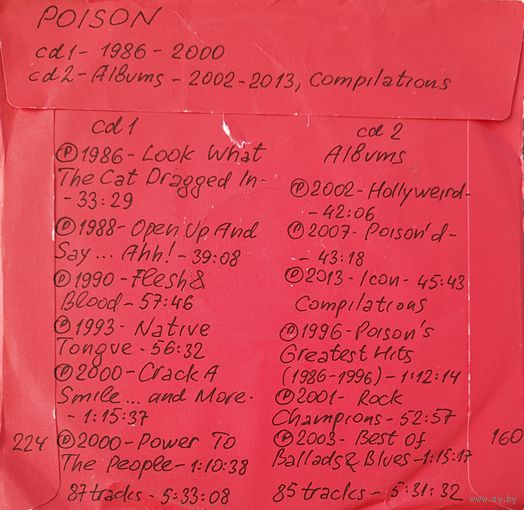 POISON
cd1 - 1986 - 2000
cd2 - Albums - 2002-2013, Compilations
cd1
Ⓟ 1986 - Look What
The Cat Dragged In -
- 33:29
Ⓟ 1988 - Open Up And
Say... Ahh! - 39:08
Ⓟ 1990 - Flesh &
Blood - 57:46
Ⓟ 1993 - Native
Tongue - 56:32
Ⓟ 2000 - Crack A
Smile... and More -
- 1:15:37
224 Ⓟ 2000 - Power To
The People - 1:10:38
87 tracks - 5:33:08
cd2
Albums
Ⓟ 2002 - Hollyweird -
- 42:06
Ⓟ 2007 - Poison'd -
- 43:18
Ⓟ 2013 - Icon - 45:43
Compilations
Ⓟ 1996 - Poison's
Greatest Hits
(1986-1996) - 1:12:14
Ⓟ 2001 - Rock
Champions - 52:57
Ⓟ 2003 - Best Of 160
Ballads & Blues - 1:15:17
85 tracks - 5:31:32
www.ay.by